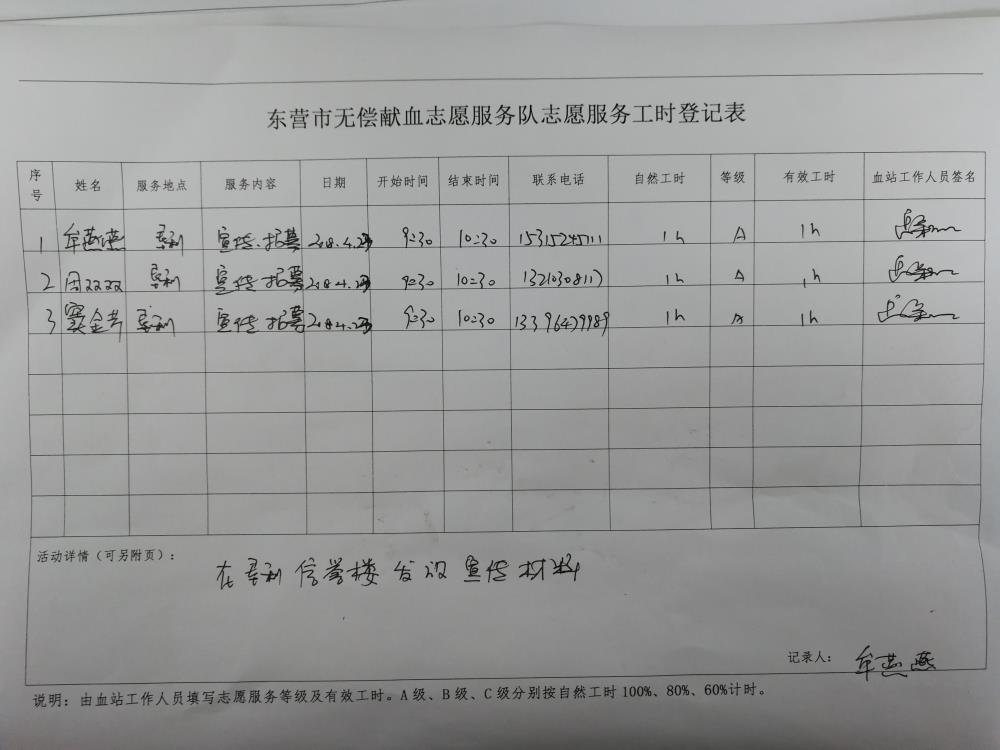 东营市无偿献血志愿服务队志愿服务工时登记表
序号 姓名 服务地点 服务内容 日期 开始时间 结束时间 联系电话 自然工时 等级 有效工时 血站工作人员签名
1 牟燕燕 垦利 宣传.招募 9:30 10:30 15315245711 1h A 1h
2 周双双 垦利 宣传 招募 9:30 10:30 13210308117 1h A 1h
3 垦利 宣传 招募 9:30 10:30 13396479989 1h A 1h
活动详情（可另附页）：
在垦利信誉楼发放宣传材料
记录人： 牟燕燕
说明：由血站工作人员填写志愿服务等级及有效工时。A级、B级、C级分别按自然工时100%、80%、60%计时。